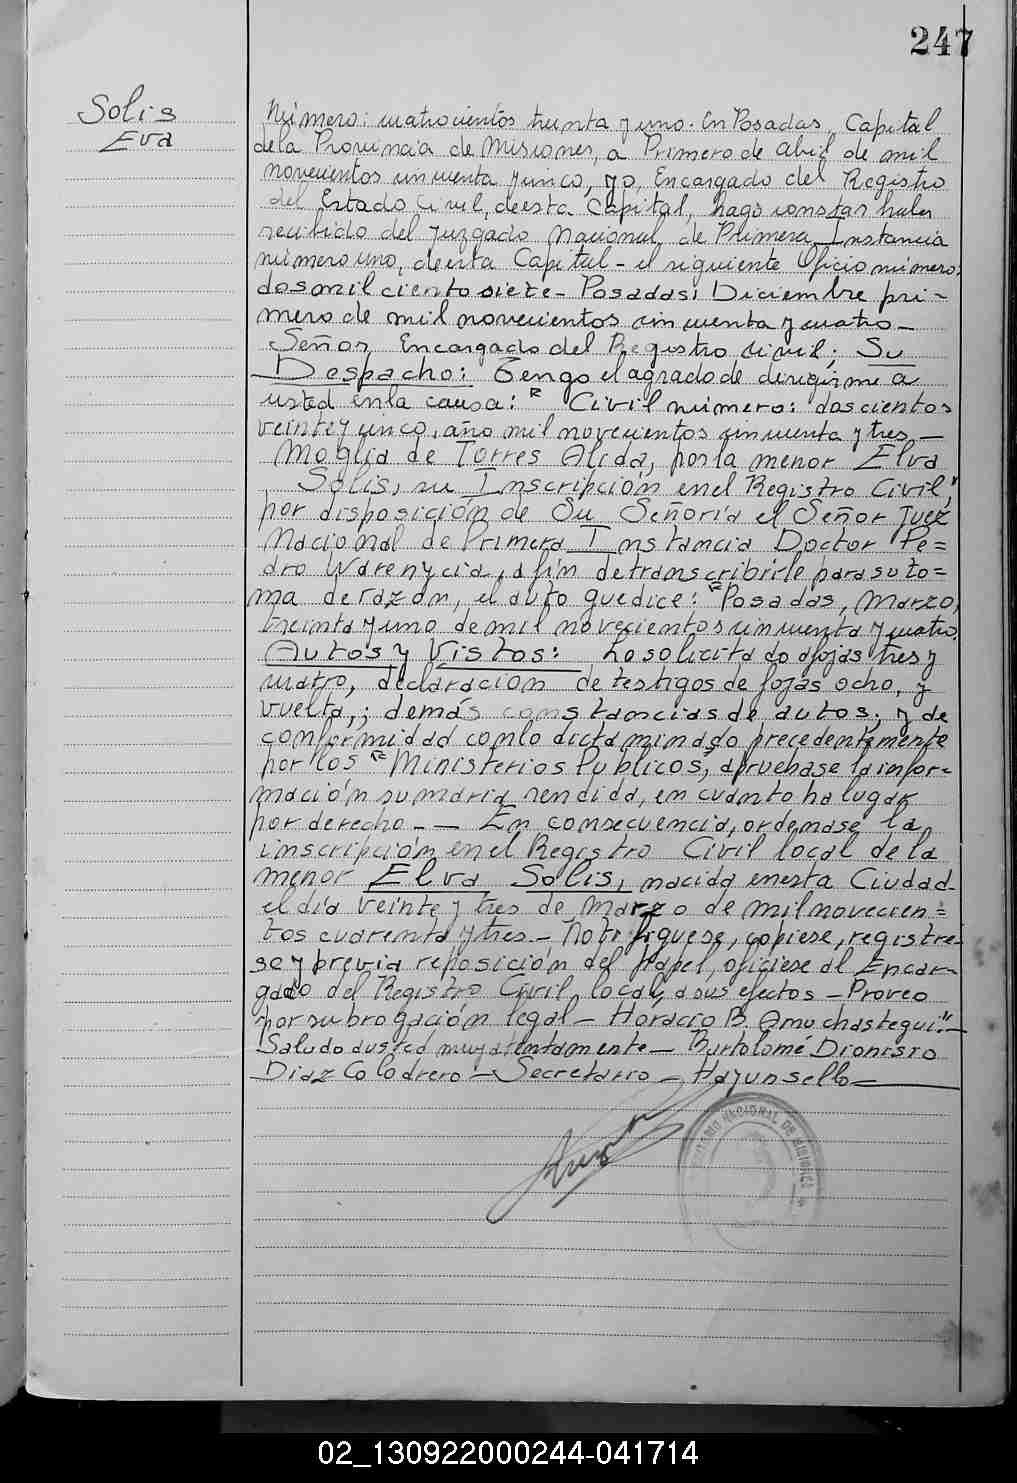 247
Solis
Eva
Número: cuatrocientos treinta y uno. En Posadas, Capital
de la Provincia de Misiones, a Primero de Abril de mil
novecientos cincuenta y cinco, yo, Encargado del Registro
del Estado Civil, de esta Capital, hago constar haber
recibido del Juzgado Nacional de Primera Instancia
número uno, de esta Capital - el siguiente Oficio número:
dos mil ciento siete - Posadas, Diciembre pri-
mero de mil novecientos cincuenta y cuatro -
Señor Encargado del Registro Civil; Su
Despacho: Tengo el agrado de dirigirme a
usted en la causa: " Civil número: doscientos
veinte y cinco, año mil novecientos cincuenta y tres -
Moglia de Torres Alida, por la menor Elva
Solis, su Inscripción en el Registro Civil",
por disposición de Su Señoría el Señor Juez
Nacional de Primera Instancia Doctor Pe=
dro Warenycia, a fin de transcribirle para su to=
ma de razón, el auto que dice: "Posadas, Marzo,
treinta y uno de mil novecientos cincuenta y cuatro.
Autos y Vistos: Lo solicitado a fojas tres y
cuatro, declaración de testigos de fojas ocho, y
vuelta,; demás constancias de autos; y de
conformidad con lo dictaminado precedentemente
por los "Ministerios Públicos", apruébase la infor-
mación sumaria rendida, en cuanto ha lugar
por derecho - — En consecuencia, ordénase la
inscripción en el Registro Civil local de la
menor Elva Solis, nacida en esta Ciudad
el día veinte y tres de Marzo de mil novecien=
tos cuarenta y tres - Notifíquese, cópiese, regístre-
se y previa reposición del papel, ofíciese al Encar-
gado del Registro Civil, local, a sus efectos - Proveo
por subrogación legal - Horacio B. Amuchastegui." -
Saludo a usted muy atentamente - Bartolomé Dionisio
Diaz Colodrero - Secretario - Hay un sello -
NACIONAL DE MISIONES
02_130922000244-041714